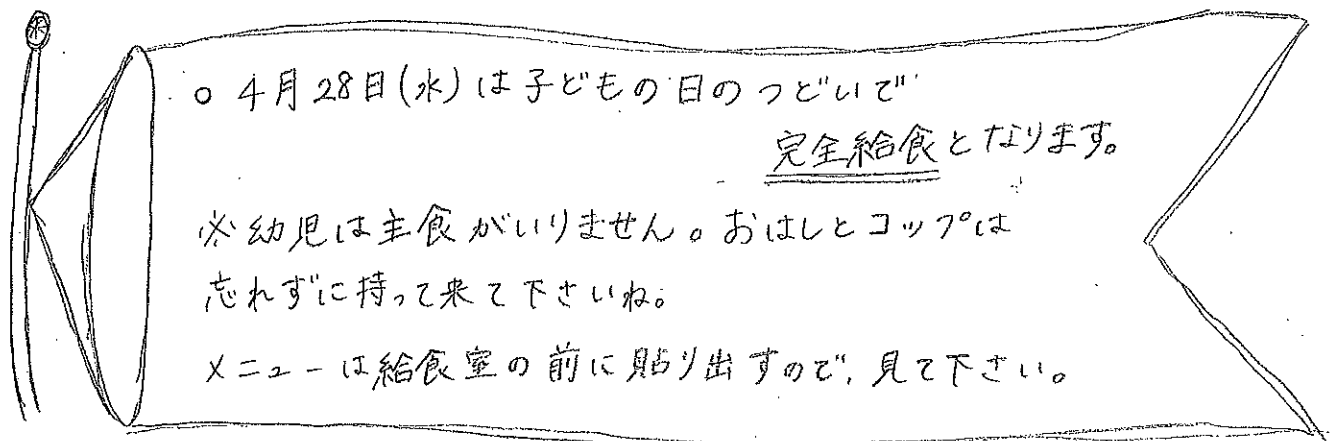 ○ 4月28日(水)は子どもの日のつどいで
完全給食となります。
※幼児は主食がいりません。おはしとコップは
忘れずに持って来て下さいね。
メニューは給食室の前に貼り出すので、見て下さい。